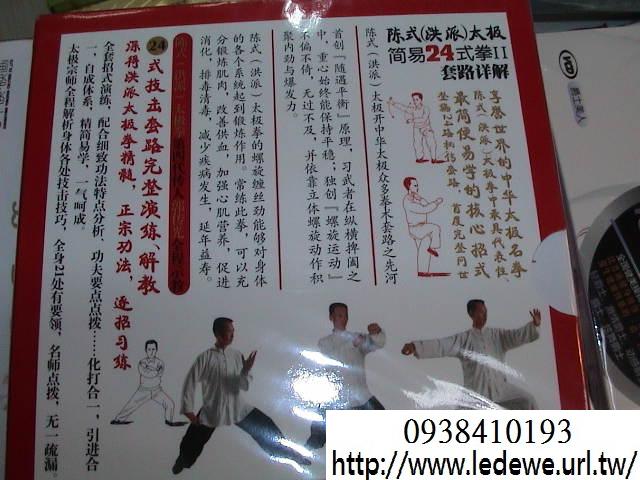 陈式(洪派)太极
简易24式拳II
套路详解
享誉世界的中华太极名拳
陈式(洪派)太极拳中最具代表性、
最简便易学的核心招式
首度完整问世
陈式(洪派)太极开中华太极众多拳术套路之先河
首创『随遇平衡』原理，习武者在纵横捭阖之
中，重心始终能保持平稳；独创『螺旋运动』
不偏不倚，无过不及，并依靠立体螺旋动作积
聚内劲与爆发力。
陈式(洪派)太极拳的螺旋缠丝劲能够对身体
的各个系统起到锻炼作用。常练此拳，可以充
分锻炼肌肉，改善供血，加强心肌营养，促进
消化，排毒清毒，减少疾病发生，延年益寿。
24式技击套路完整演练、解教
深得洪派太极拳精髓，正宗功法，逐招习练
全套招式演练，配合细致功法特点分析、功夫要点点拨……化打合一，引进合
一，自成体系，精简易学，一气呵成。
太极宗师全程解析身体各处技击技巧，全身21处有要领，名师点拨，无一疏漏。
0938410193
http://www.ledewe.url.tw/